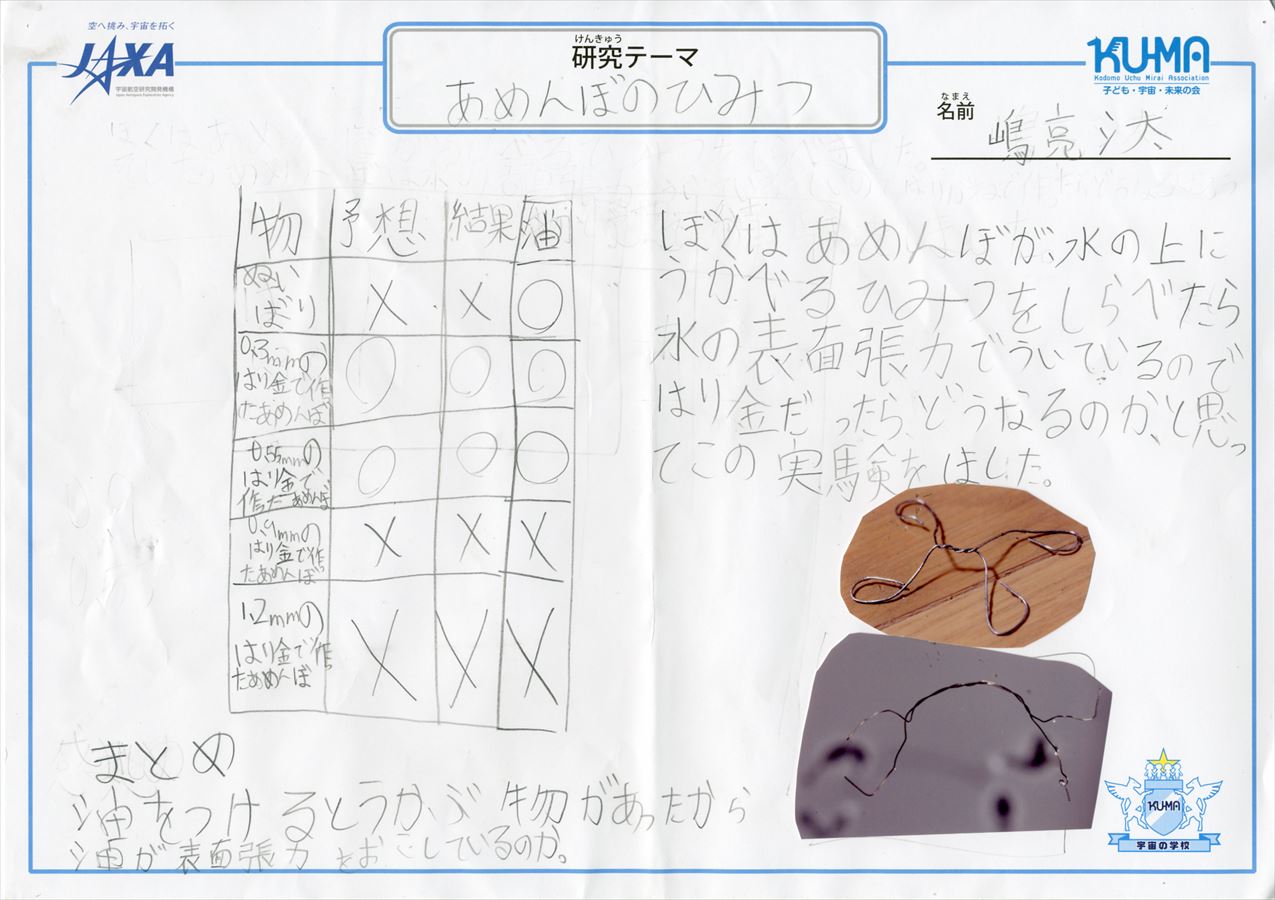 空へ挑み、宇宙を拓く
JAXA
宇宙航空研究開発機構
Japan Aerospace Exploration Agency
けんきゅう
研究テーマ
あめんぼのひみつ
KU-MA
Kodomo Uchu Mirai Association
子ども・宇宙・未来の会
なまえ
名前
嶋亮汰
物 予想 結果 油
ぬいばり × × ○
0.3mmのはり金で作たあめんぼ ○ ○ ○
0.55mmのはり金で作たあめんぼ ○ ○ ○
0.9mmのはり金で作たあめんぼ × × ×
1.2mmのはり金で作たあめんぼ × × ×
ぼくはあめんぼが、水の上に
うかべるひみつをしらべたら
水の表面張力でういているので
はり金だったら、どうなるのか、と思っ
てこの実験をはした。
まとめ
油をつけるとうかぶ物があったから
油が表面張力をおこしているのか。
KU-MA
宇宙の学校